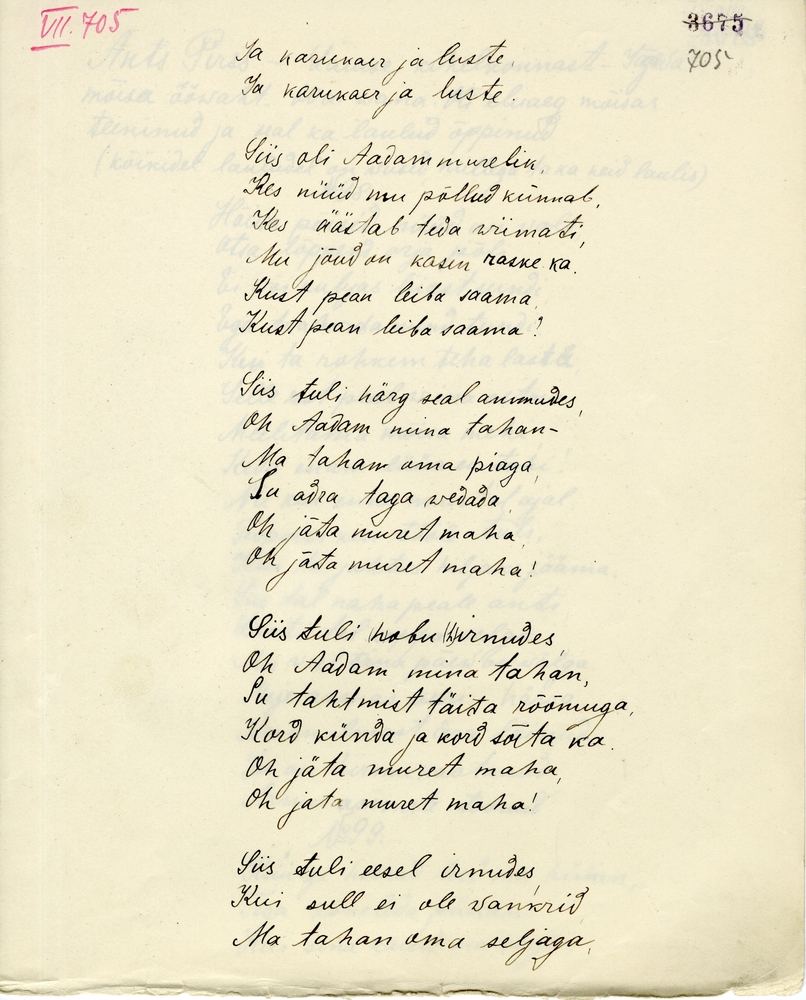 VII. 705
3675
705
Ja karukaer ja luste,
Ja karukaer ja luste.
Siis oli Aadam murelik,
Kes nüüd mu põllud künnab,
Kes äästab teda wiimati,
Mu jõud on kasin raske ka.
Kust pean leiba saama,
Kust pean leiba saama?
Siis tuli härg seal ammudes,
Oh Aadam mina tahan-
Ma tahan oma piaga,
Su adra taga wedada,
Oh jäta muret maha,
Oh jäta muret maha!
Siis tuli (h)obu (h)irnudes,
Oh Aadam mina tahan,
Su tahtmist täita rõõmuga,
Kord künda ja kord sõita ka.
Oh jäta muret maha,
Oh jäta muret maha!
Siis tuli eesel irnudes,
Kui sull ei ole wankrid,
Ma tahan oma seljaga,